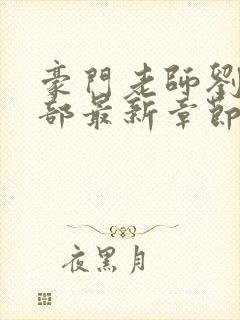 豪門老師劉
部最新章節
夜黑月